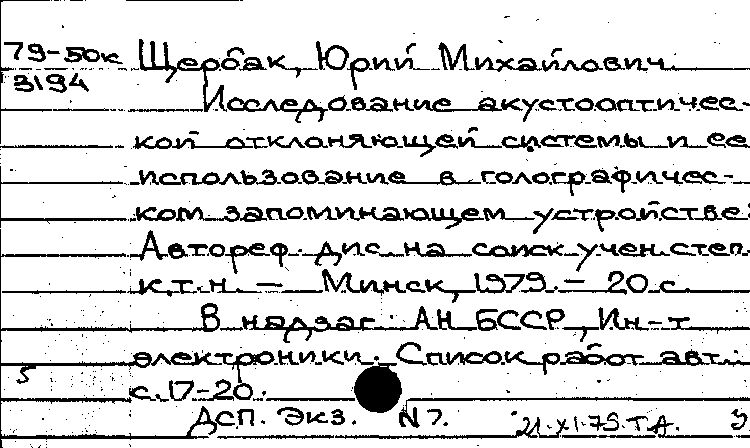 79-50к Щербак, Юрий Михайлович.
3194
Исследование акустооптичес-
кой отклоняющей системы и ее
использование в голографичес-
ком запоминающем устройстве:
Автореф. дис. на соиск учен. степ.
к.т.н. — Минск, 1979. — 20 с.
В надзаг: АН БССР, Ин-т
электроники. Список работ авт.:
5 с. 17-20.
ДСП. Экз. N 7. 21.XI.79. Т.А.